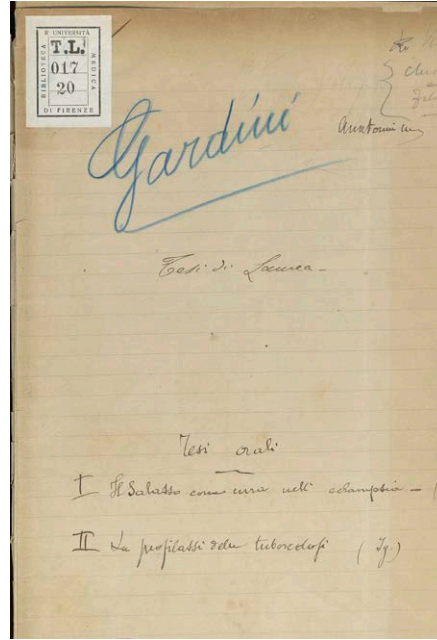 R. UNIVERSITÀ
BIBLIOTECA
MEDICA
DI FIRENZE
T.L.
017
20
Gardini
Tesi di Laurea -
Tesi orali
I Il Salasso come cura nell' eclampsia - (
II La profilassi della tubercolosi ( Ig.)